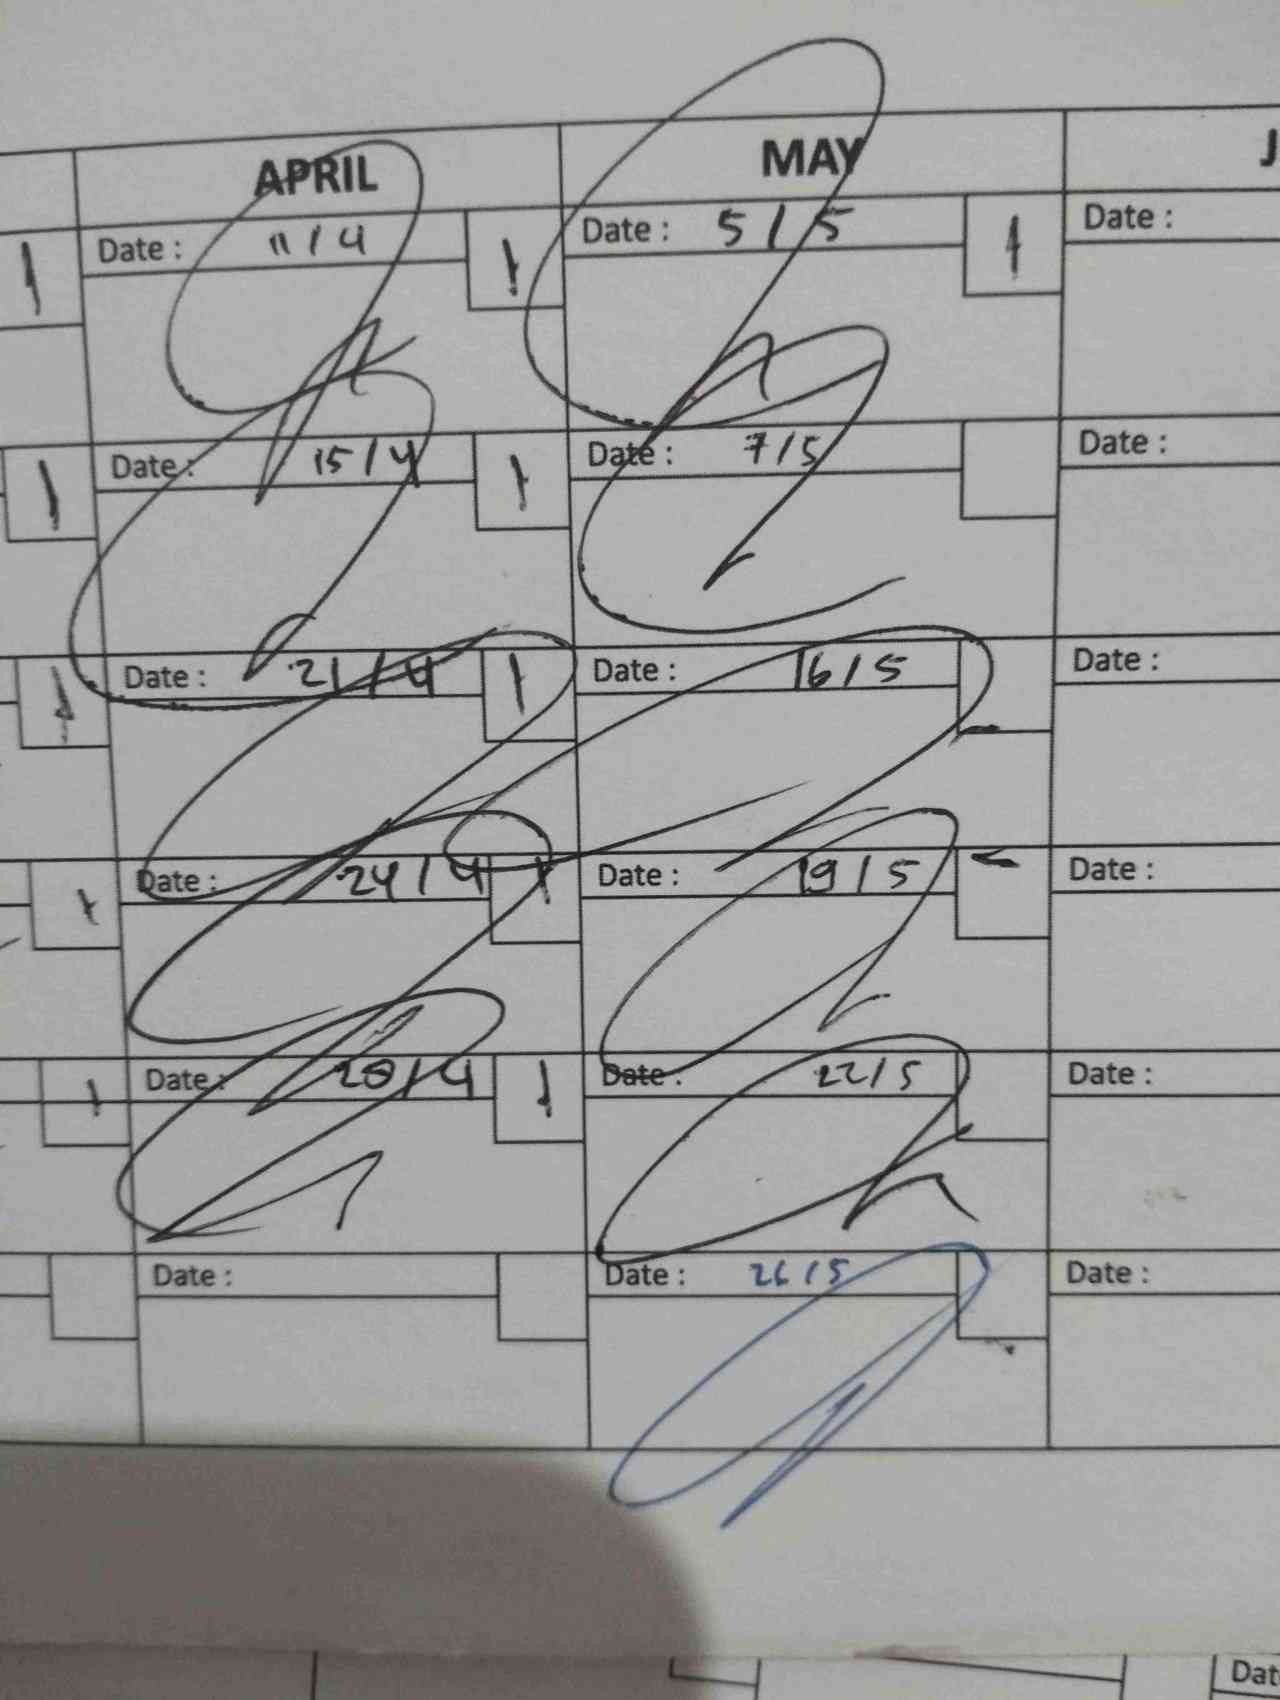 APRIL MAY J
1 Date : 11/4 1 Date : 5/5 1 Date :
1 Date : 15/4 1 Date : 7/5 Date :
1 Date : 21/4 1 Date : 16/5 Date :
1 Date : 24/4 1 Date : 19/5 Date :
1 Date : 28/4 1 Date : 22/5 Date :
Date : Date : 26/5 Date :
Dat